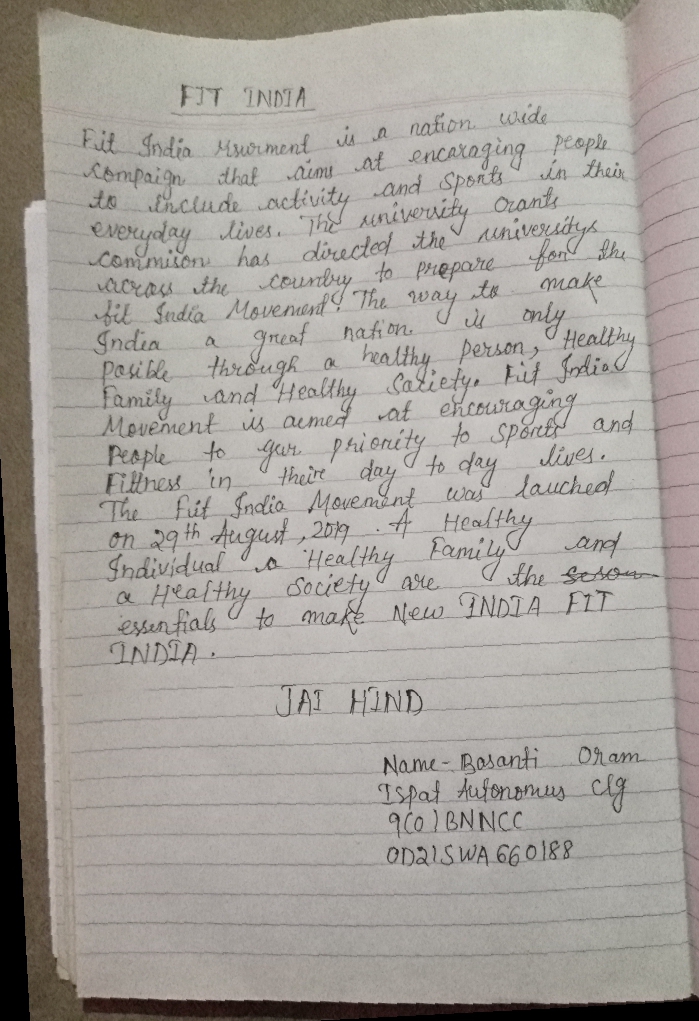 FIT INDIA
Fit India Msurment is a nation wide
compaign that aims at encaraging people
to include activity and Sports in their
everyday lives. The university Orants
commison has directed the universitys
across the country to prepare for the
fit India Movement. The way to make
India a great nation is only
posible through a healthy person, Healthy
Family and Healthy Saciety. Fit India
Movement is aemed at encouraging
People to give priority to sports and
Fittness in their day to day lives.
The Fit India Movement was lauched
on 29th August, 2019. A Healthy
Individual a Healthy Family and
a Healthy Society are the
essentials to make New INDIA FIT
INDIA.
JAI HIND
Name- Basanti Oram
Ispat Autonomus clg
9(0) BNNCC
OD21SWA660188